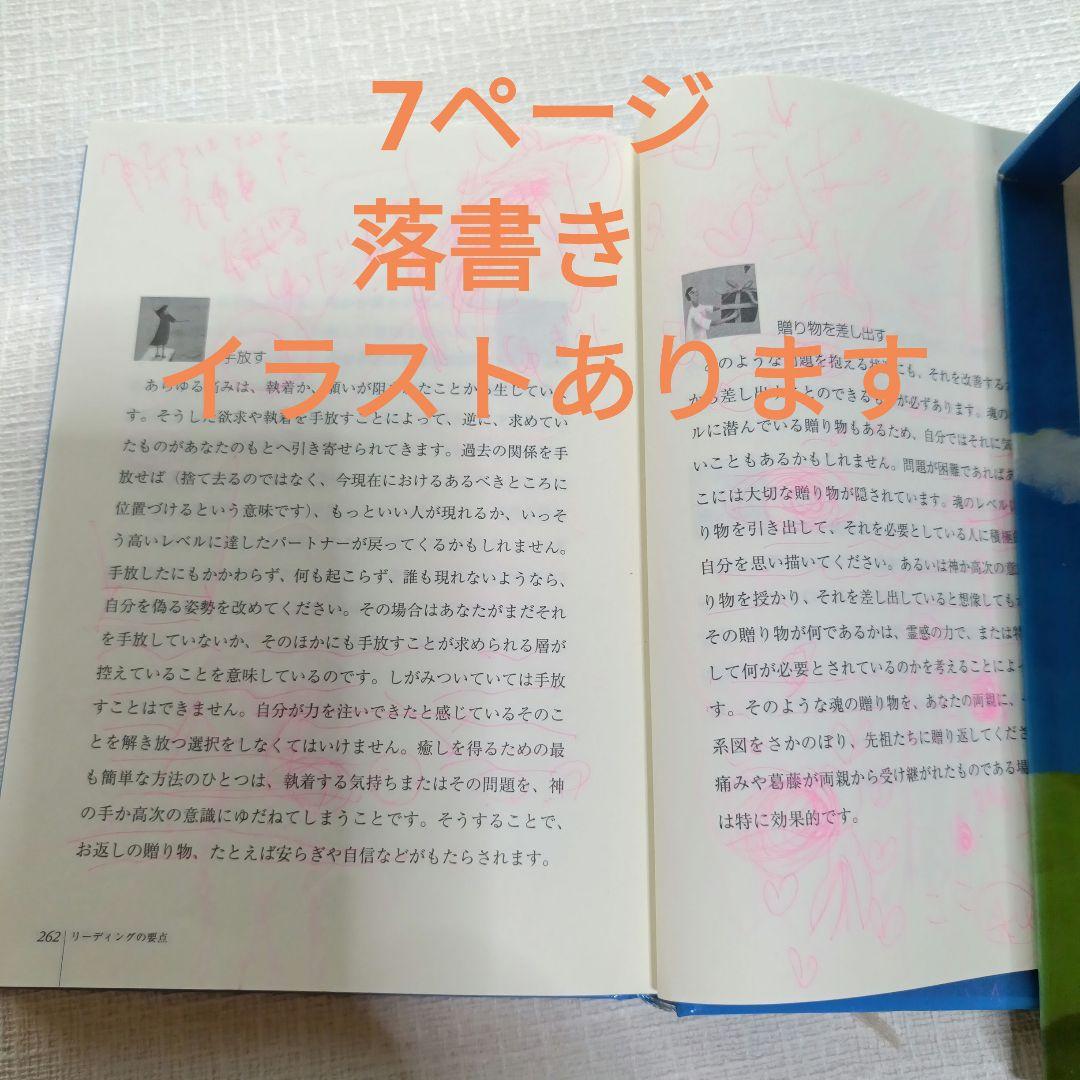 7ページ
落書き
イラストあります
手放す
あらゆる痛みは、執着か、願いが阻
たことか
生してい
す。そうした欲求や執着を手放すことによって、逆に、求めてい
たものがあなたのもとへ引き寄せられてきます。過去の関係を手
放せば（捨て去るのではなく、今現在におけるあるべきところに
位置づけるという意味です）、もっといい人が現れるか、いっそ
う高いレベルに達したパートナーが戻ってくるかもしれません。
手放したにもかかわらず、何も起こらず、誰も現れないようなら、
自分を偽る姿勢を改めてください。その場合はあなたがまだそれ
を手放していないか、そのほかにも手放すことが求められる層が
控えていることを意味しているのです。しがみついていては手放
すことはできません。自分が力を注いできたと感じているそのこ
とを解き放つ選択をしなくてはいけません。癒しを得るための最
も簡単な方法のひとつは、執着する気持ちまたはその問題を、神
の手か高次の意識にゆだねてしまうことです。そうすることで、
お返しの贈り物、たとえば安らぎや自信などがもたらされます。
262 リーディングの要点
贈り物を差し出す
どのような問題を抱える
にも、それを改善する
から差し出
とのできる
が必ずあります。魂の
ルに潜んでいる贈り物もあるため、自分ではそれに気
いこともあるかもしれません。問題が困難であればあ
こには大切な贈り物が隠されています。魂のレベル
り物を引き出して、それを必要としている人に積極
自分を思い描いてください。あるいは神か高次の意
り物を授かり、それを差し出していると想像しても
その贈り物が何であるかは、霊感の力で、または特
して何が必要とされているのかを考えることによ
す。そのような魂の贈り物を、あなたの両親に、
系図をさかのぼり、先祖たちに贈り返してくださ
痛みや葛藤が両親から受け継がれたものである場
は特に効果的です。